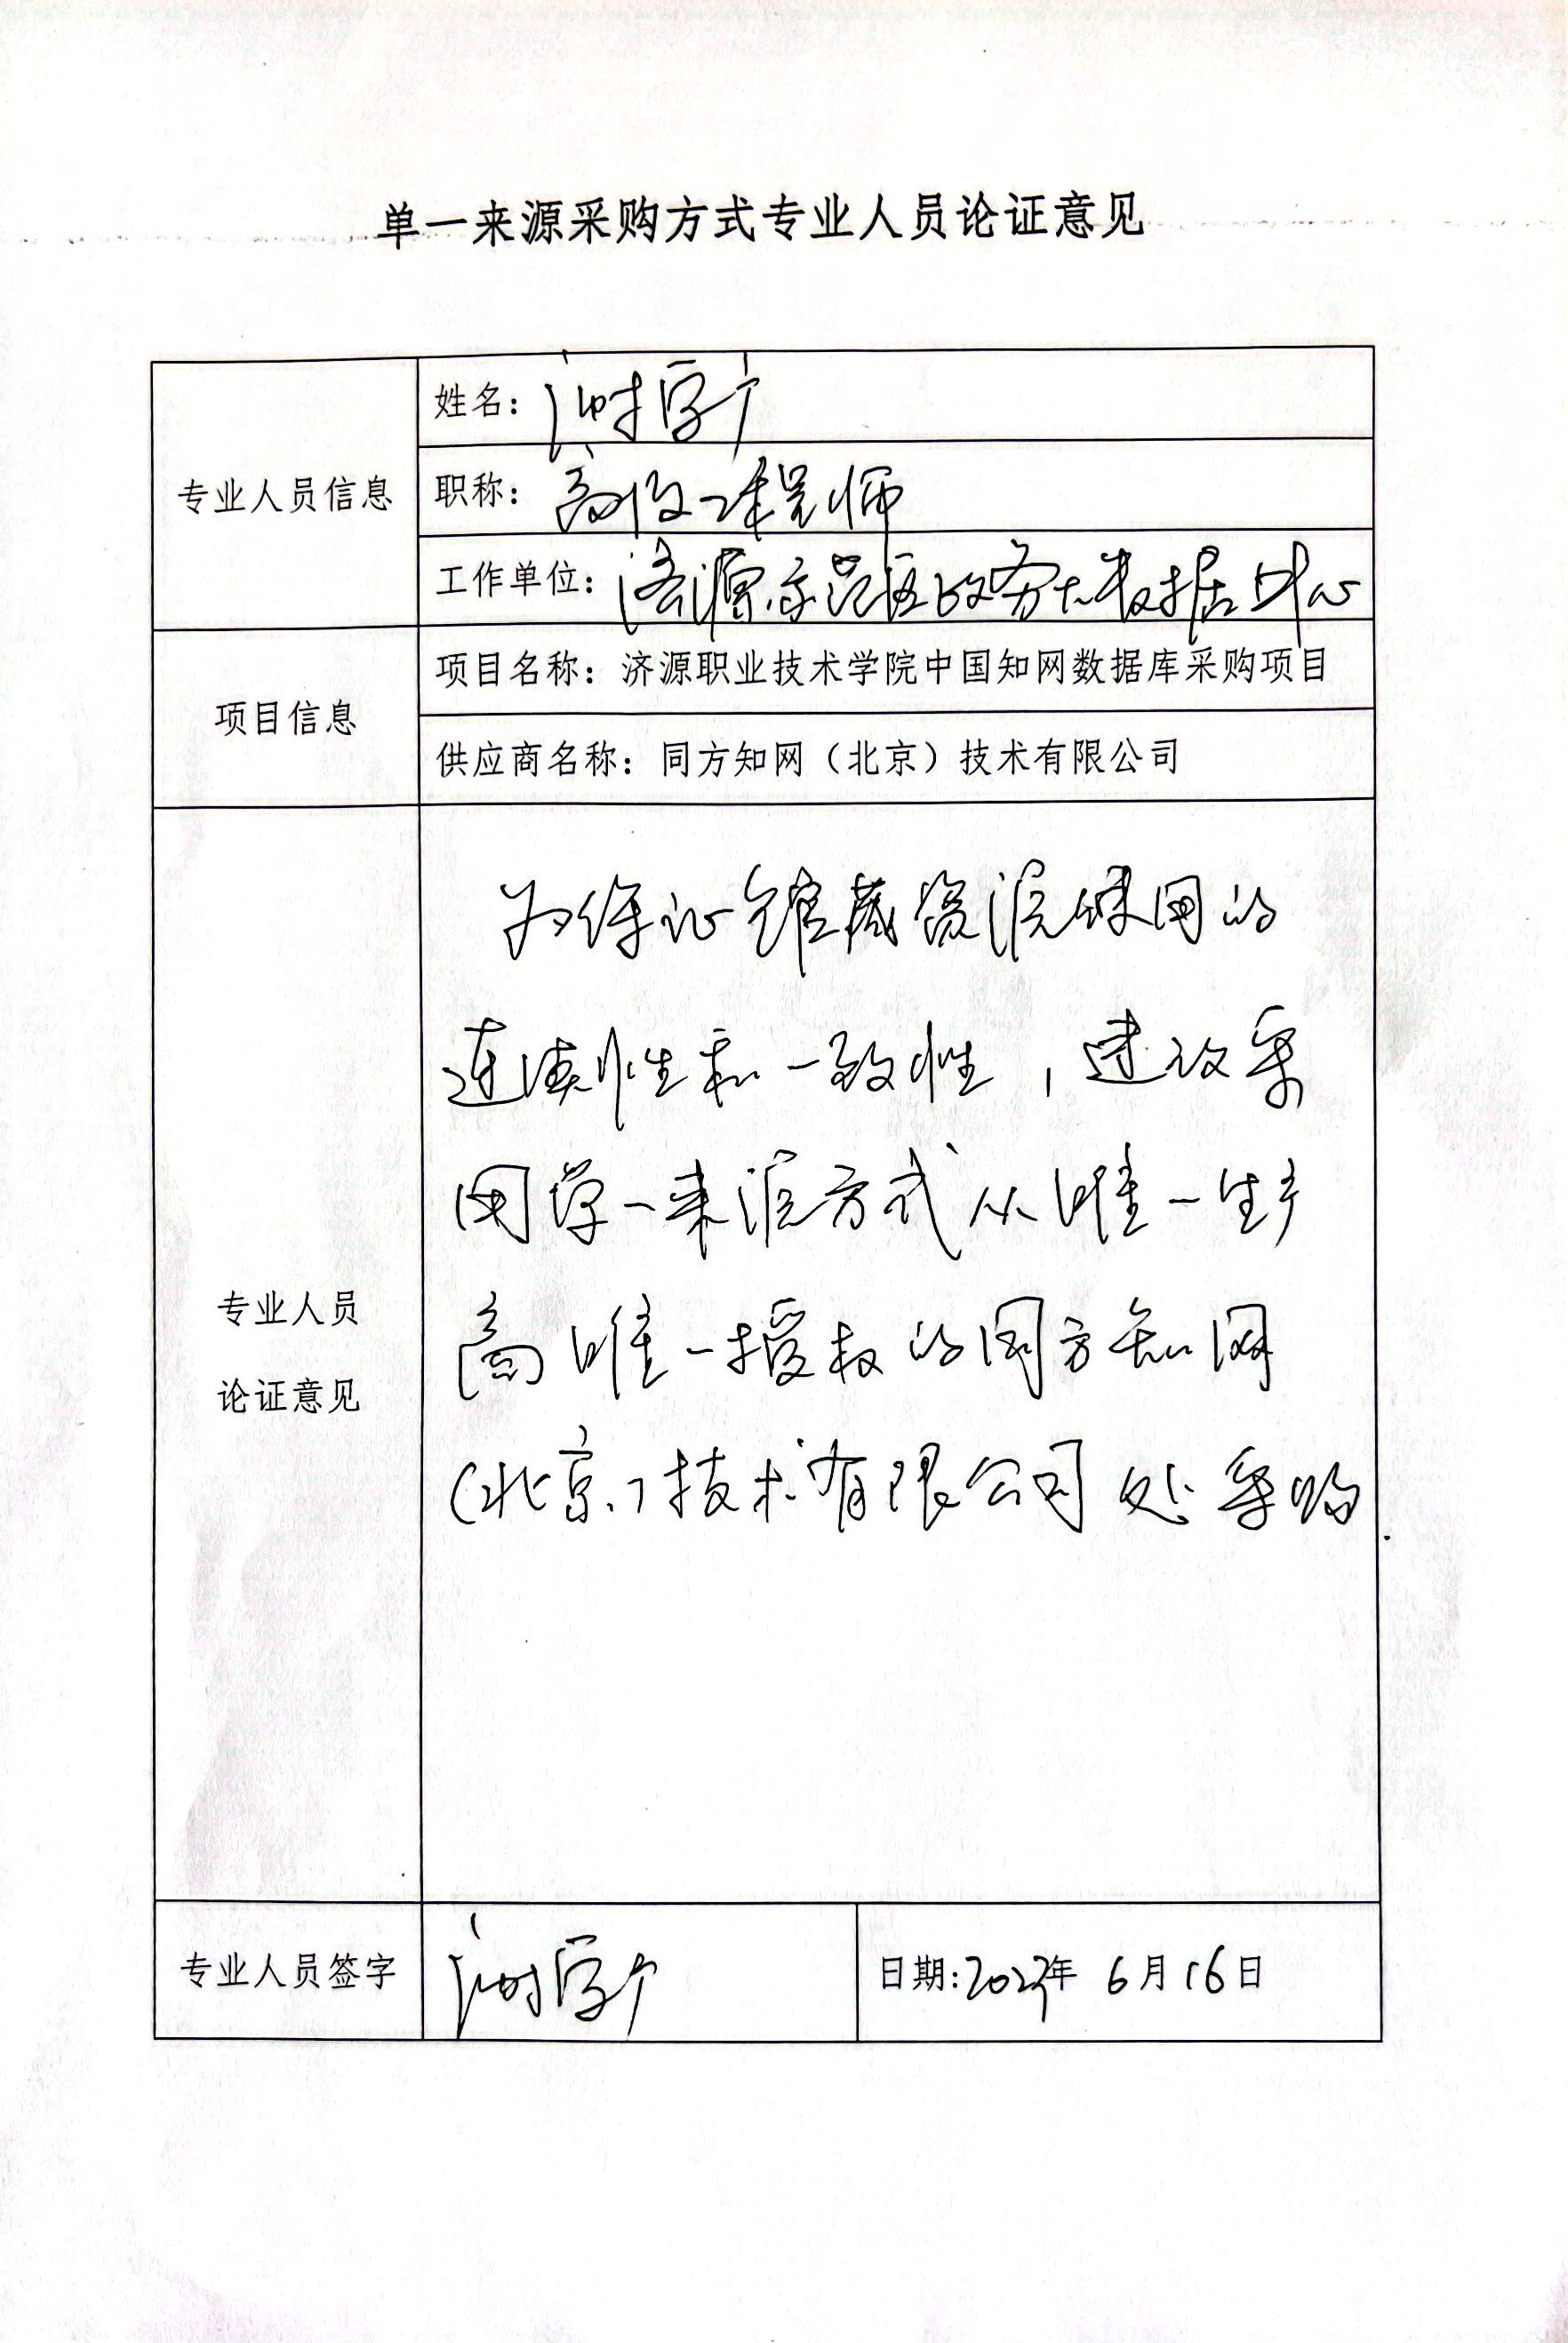 单一来源采购方式专业人员论证意见
专业人员信息
姓名：
职称：高级工程师
工作单位：济源示范区政务大数据中心
项目信息
项目名称：济源职业技术学院中国知网数据库采购项目
供应商名称：同方知网（北京）技术有限公司
专业人员
论证意见
为保证馆藏资源使用的
连续性和一致性，建议采
用单一来源方式从唯一生产
商唯一授权的同方知网
（北京）技术有限公司处采购.
专业人员签字
日期:2023年 6月16日